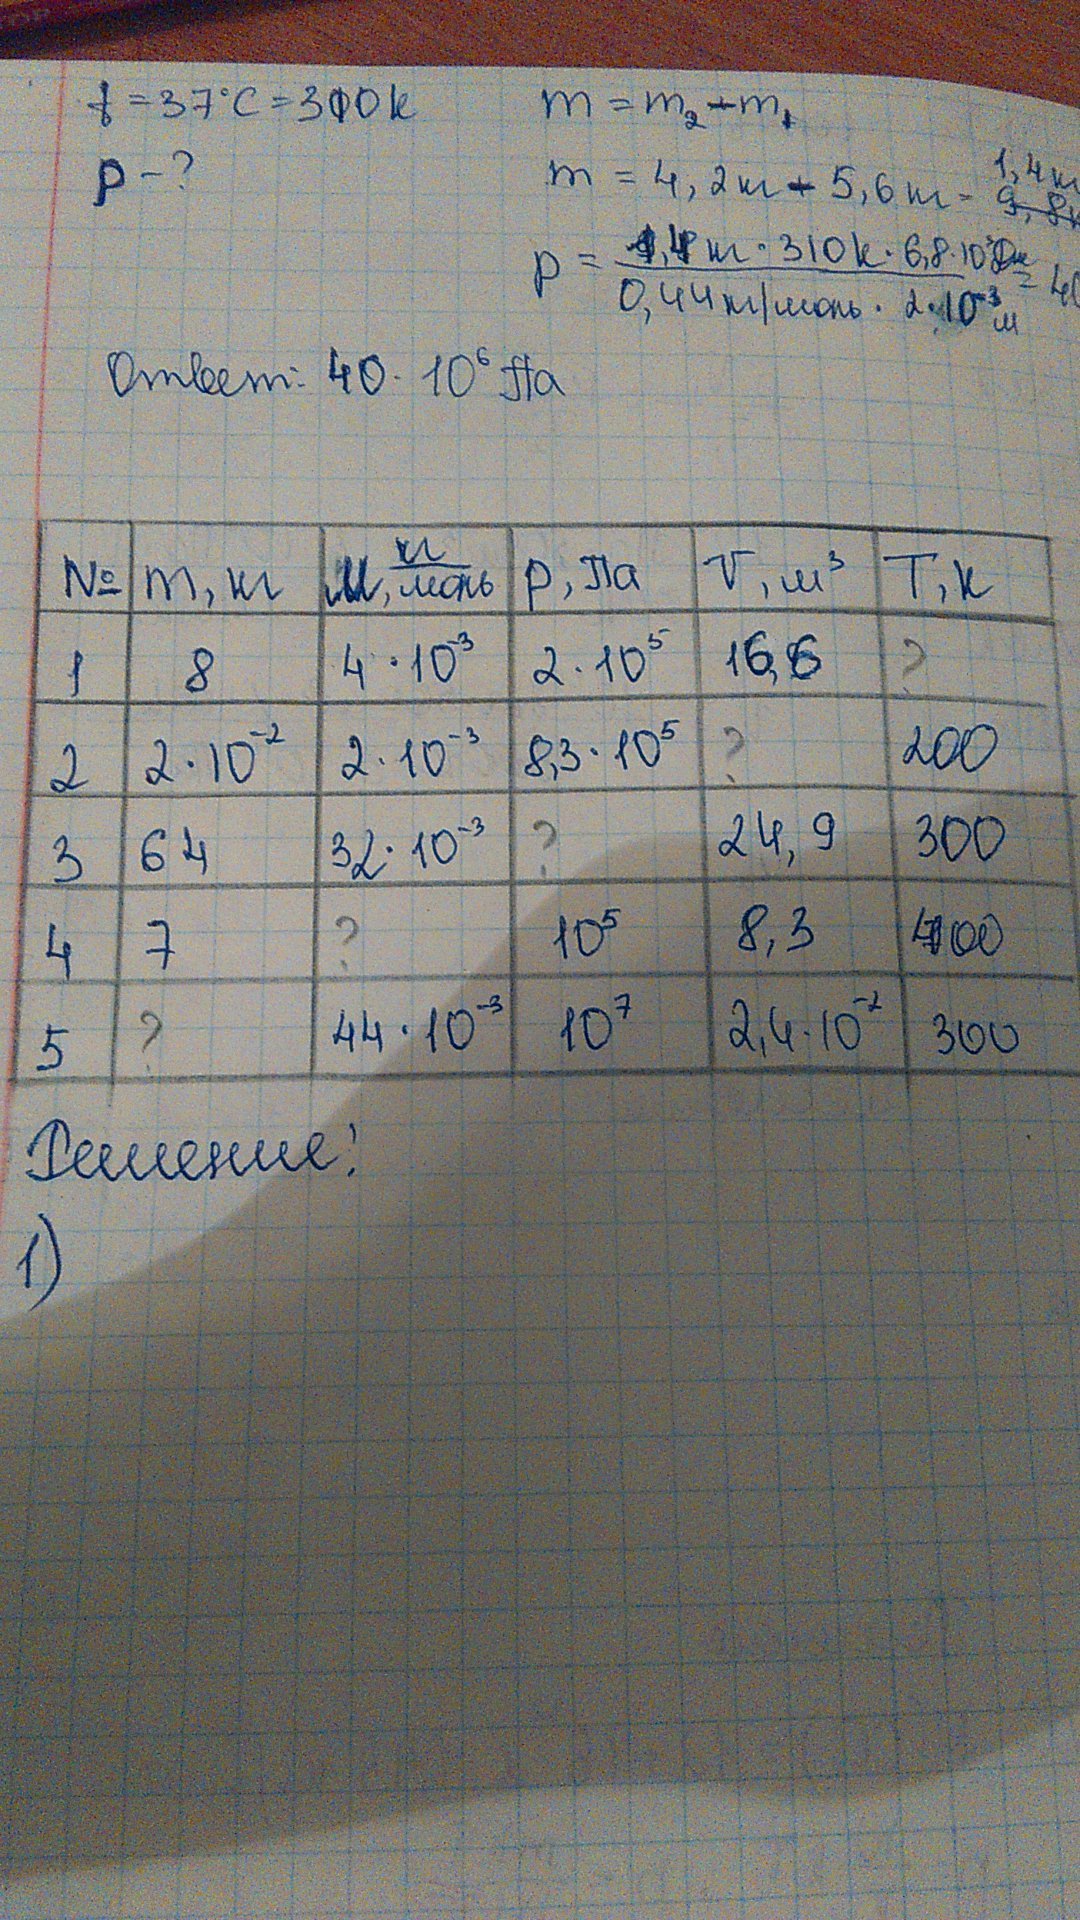 t = 37°C = 310K
m = m₂ - m₁
p - ?
m = 4,2кг - 5,6кг = 1,4кг
p = 1,4кг · 310К · 6,8 · 10³
0,44кг/моль · 2 · 10⁻³ м
Ответ: 40 · 10⁶ Па
№ m, кг M, кг/моль p, Па V, м³ T, К
1 8 4 · 10⁻³ 2 · 10⁵ 16,6 ?
2 2 · 10⁻² 2 · 10⁻³ 8,3 · 10⁵ ? 200
3 64 32 · 10⁻³ ? 24,9 300
4 7 ? 10⁵ 8,3 400
5 ? 44 · 10⁻³ 10⁷ 2,4 · 10⁻² 300
Решение:
1)